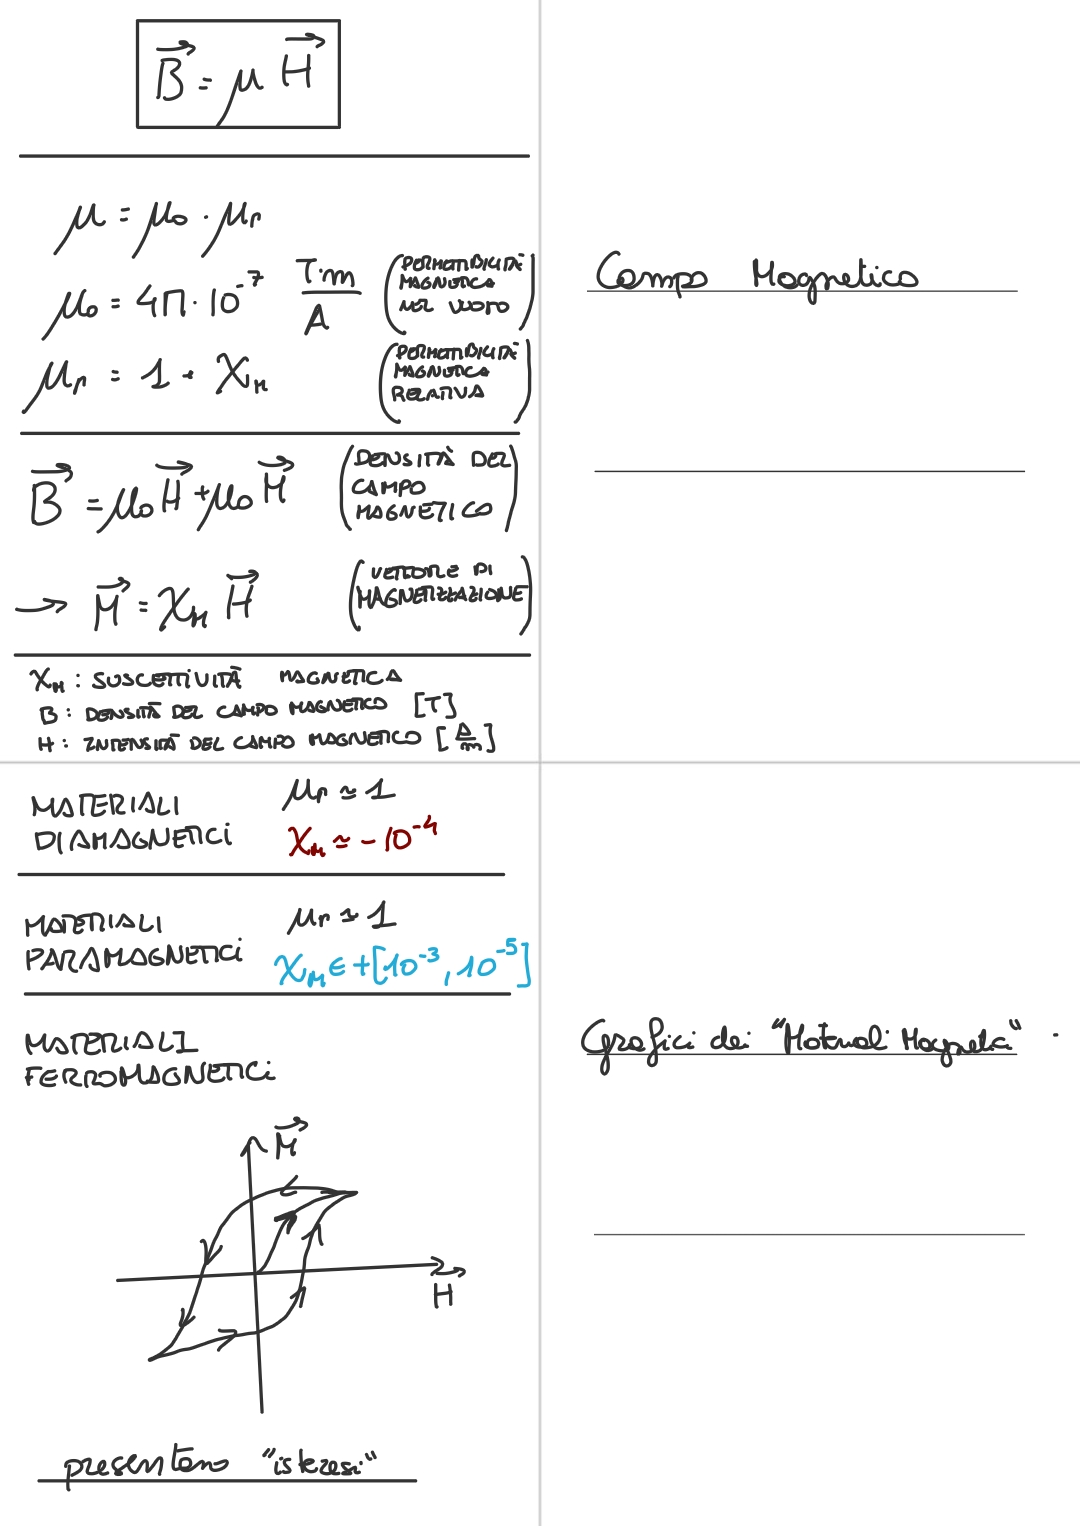 B = μ H
μ = μ₀ · μr
μ₀ = 4π · 10⁻⁷ T·m/A (PERMEABILITÀ MAGNETICA NEL VUOTO)
μr = 1 + χm (PERMEABILITÀ MAGNETICA RELATIVA)
B = μ₀ H + μ₀ M (DENSITÀ DEL CAMPO MAGNETICO)
→ M = χm H (VETTORE DI MAGNETIZZAZIONE)
χm : SUSCETTIVITÀ MAGNETICA
B : DENSITÀ DEL CAMPO MAGNETICO [T]
H : INTENSITÀ DEL CAMPO MAGNETICO [A/m]
Campo Magnetico
MATERIALI DIAMAGNETICI
μr ≃ 1
χm ≃ - 10⁻⁴
MATERIALI PARAMAGNETICI
μr ≃ 1
χm ∈ + [10⁻³, 10⁻⁵]
MATERIALI FERROMAGNETICI
M
H
presentano "isteresi"
Grafici dei "Material Magnetic"